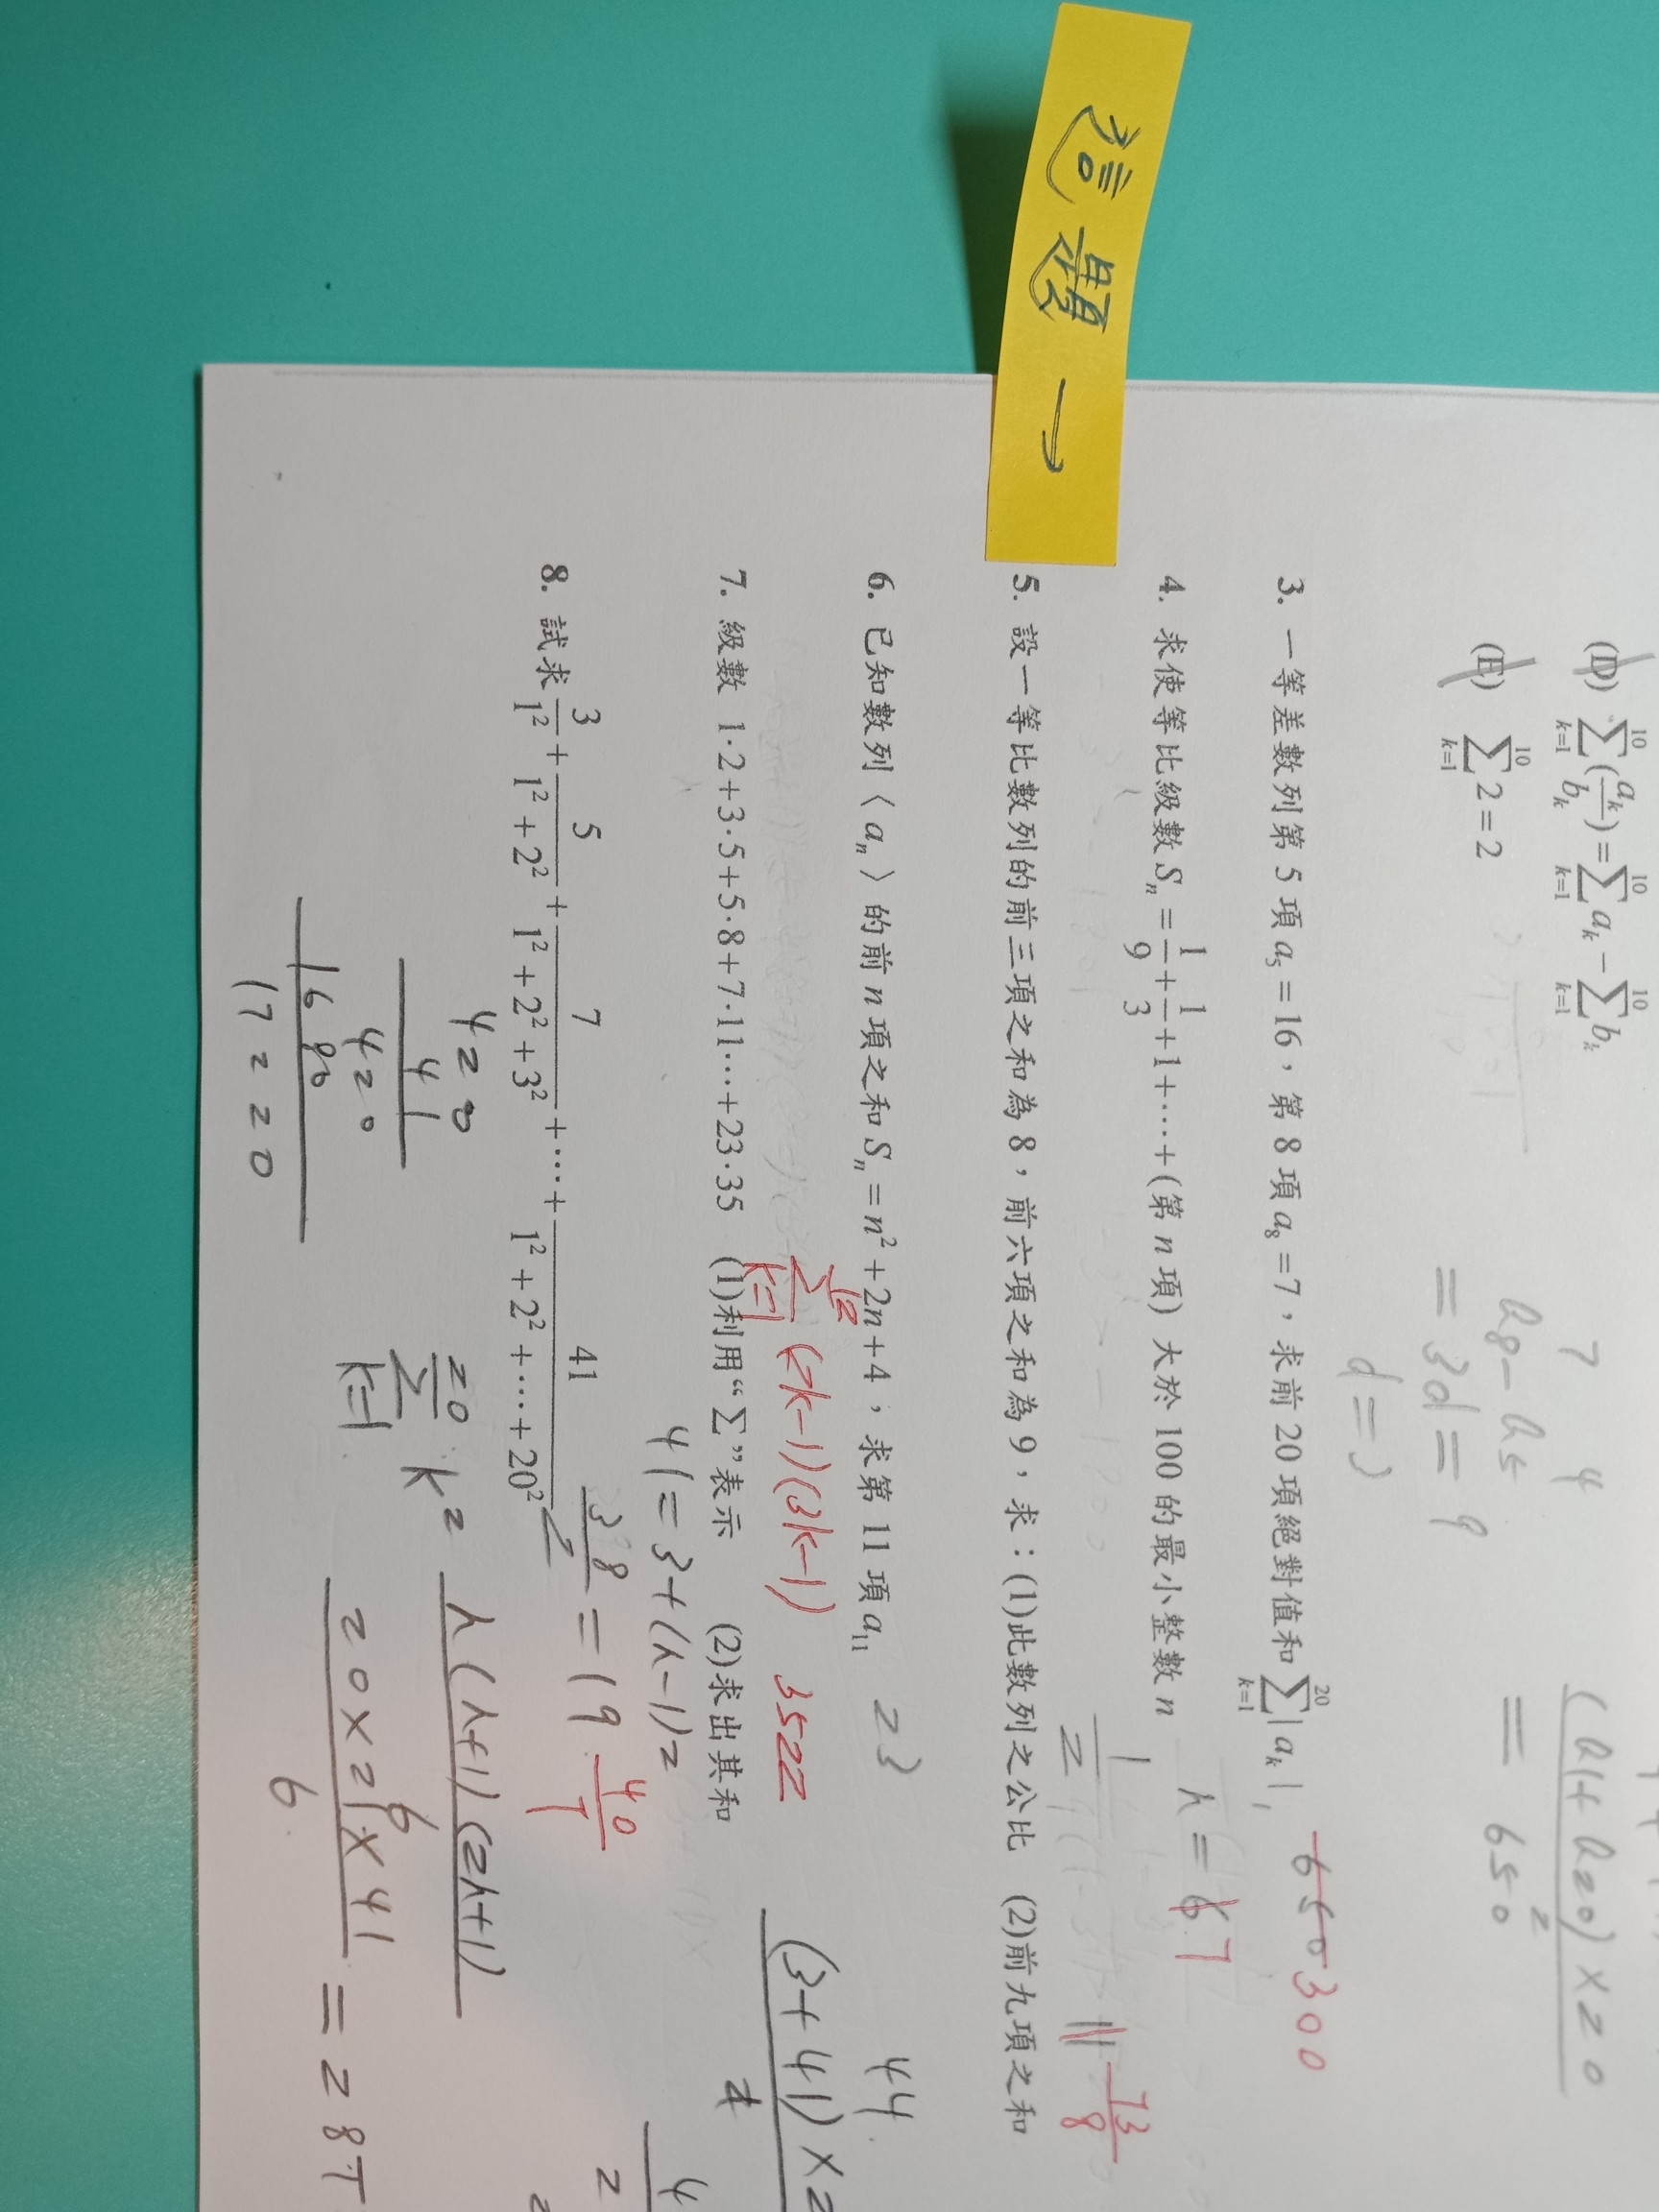 這題 →
(D) \sum_{k=1}^{10} (\frac{a_k}{b_k}) = \sum_{k=1}^{10} a_k - \sum_{k=1}^{10} b_k
(E) \sum_{k=1}^{10} 2 = 2
7 4
a8-a5
= 3d = 9
(a1+a20)×20
2
= 650
3. 一等差數列第 5 項 a_5 = 16,第 8 項 a_8 = 7,求前 20 項絕對值和 \sum_{k=1}^{20} | a_k |
650 300
4. 求使等比級數 S_n = \frac{1}{9} + \frac{1}{3} + 1 + ⋯ + (第 n 項) 大於 100 的最小整數 n
n = 6 7
5. 設一等比數列的前三項之和為 8,前六項之和為 9,求:(1)此數列之公比 (2)前九項之和
\frac{1}{2} 11 \frac{73}{8}
6. 已知數列〈a_n〉的前 n 項之和 S_n = n^2 + 2n + 4,求第 11 項 a_{11}
23
\sum_{k=1}^{12} (2k-1)(3k-1) 3522
7. 級數 1·2+3·5+5·8+7·11⋯+23·35 (1)利用“Σ”表示 (2)求出其和
41=3+(n-1)2
\frac{38}{2} = 19
\frac{40}{7}
8. 試求 \frac{3}{1^2} + \frac{5}{1^2+2^2} + \frac{7}{1^2+2^2+3^2} + ⋯ + \frac{41}{1^2+2^2+⋯+20^2}
44
(3+41)×2
2
420
41
420
1680
17220
\sum_{k=1}^{20} k^2
n(n+1)(2n+1)
6
20×21×41
6
= 287